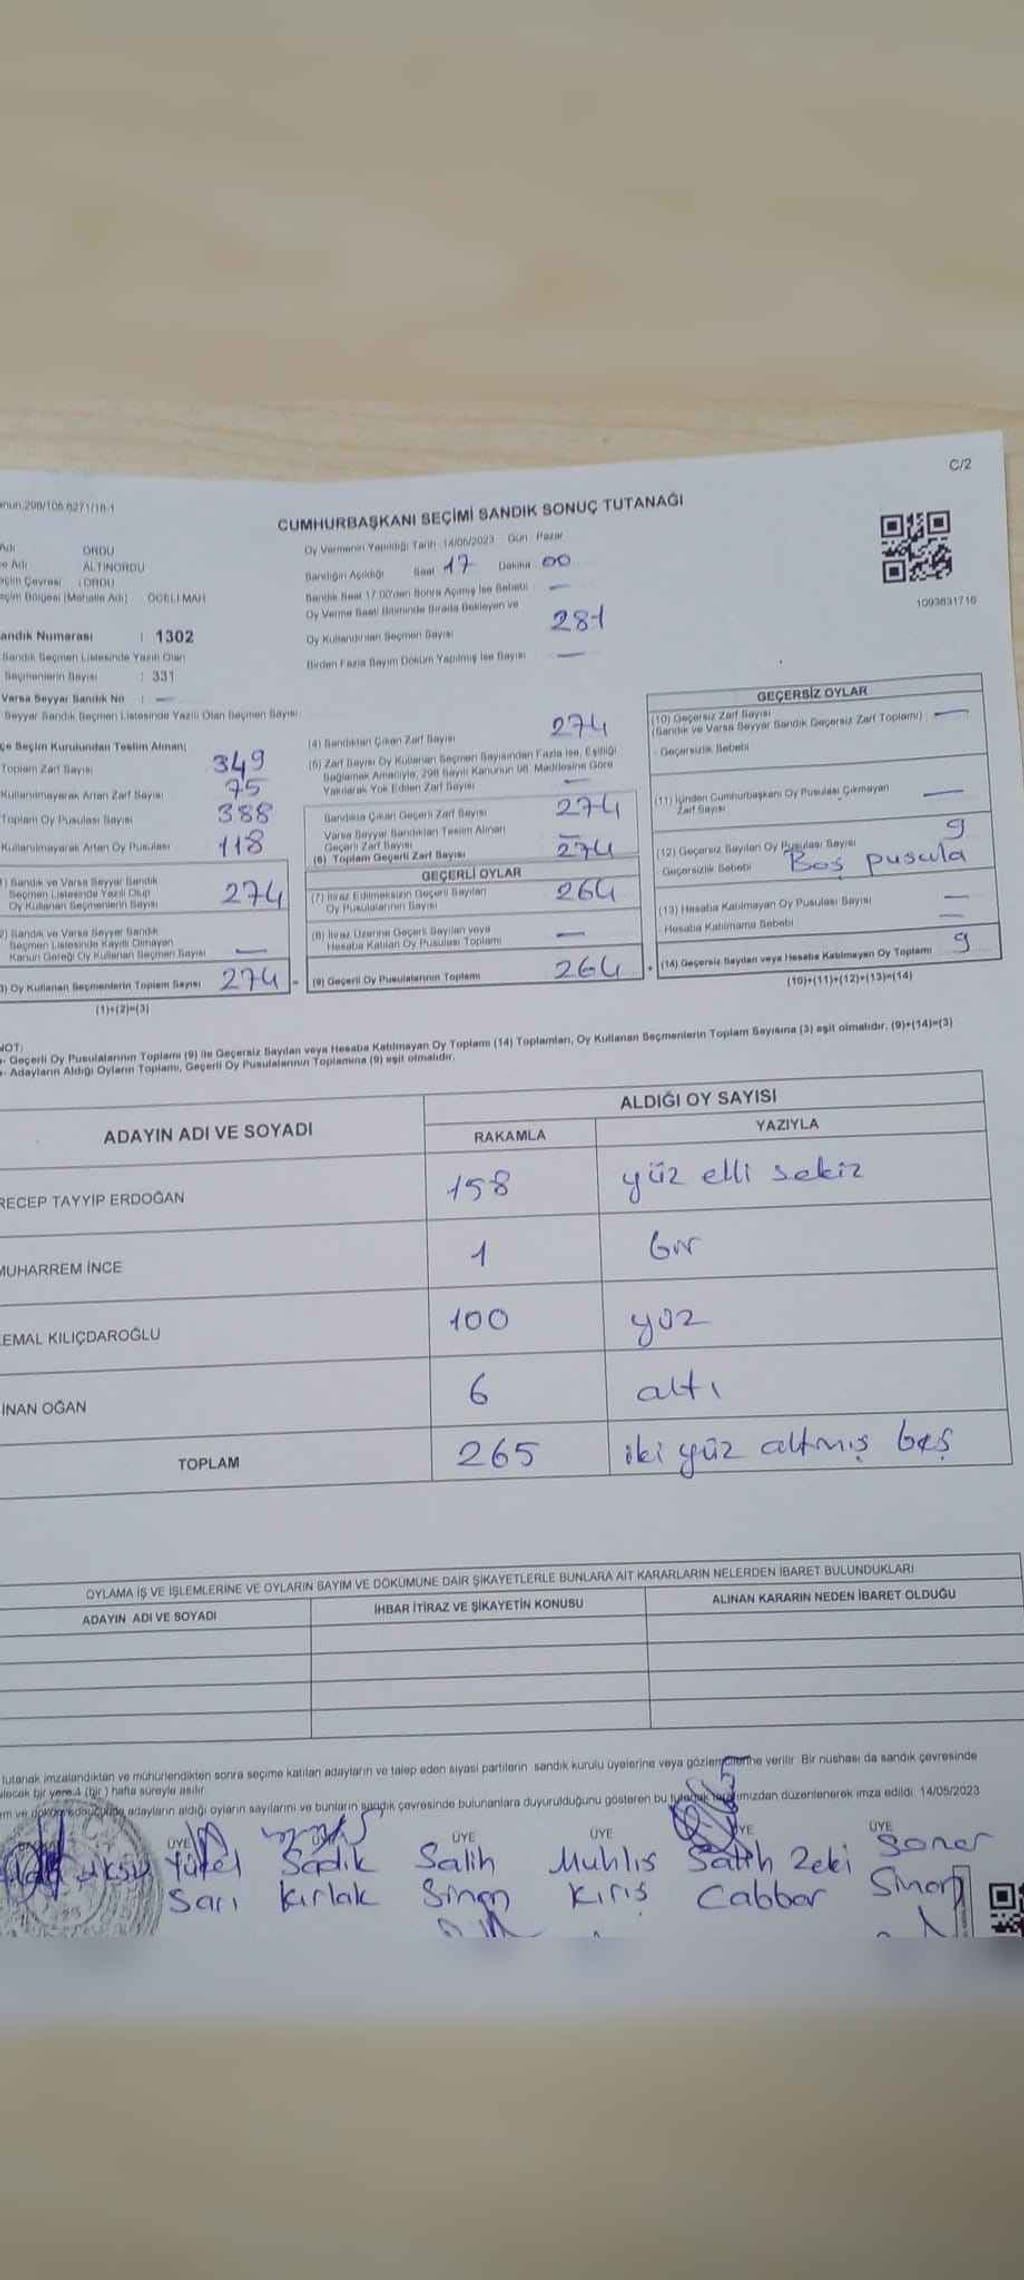 C/2
CUMHURBAŞKANI SEÇİMİ SANDIK SONUÇ TUTANAĞI
ORDU
ALTINORDU
ORDU
Seçim Bölgesi (Mahalle Adı) ÖCELİ MAH
Sandık Numarası : 1302
Sandık Seçmen Listesinde Yazılı Olan
Seçmenlerin Sayısı : 331
Varsa Seyyar Sandık No : —
Seyyar Sandık Seçmen Listesinde Yazılı Olan Seçmen Sayısı
Oy Vermenin Yapıldığı Tarih 14/05/2023 Gün Pazar
Sandığın Açıldığı Saat 17 Dakika 00
Sandık Saat 17.00'den Sonra Açılmış İse Sebebi —
Oy Verme Saati Bitiminde Sırada Bekleyen ve
Oy Kullandırılan Seçmen Sayısı 281
Birden Fazla Sayım Döküm Yapılmış İse Sayısı —
1093831716
Seçim Kurulundan Teslim Alınan;
Toplam Zarf Sayısı 349
Kullanılmayarak Artan Zarf Sayısı 75
Toplam Oy Pusulası Sayısı 388
Kullanılmayarak Artan Oy Pusulası 118
Sandık ve Varsa Seyyar Sandık
Seçmen Listesinde Yazılı Olup
Oy Kullanan Seçmenlerin Sayısı 274
2) Sandık ve Varsa Seyyar Sandık
Seçmen Listesinde Kayıtlı Olmayan
Kanun Gereği Oy Kullanan Seçmen Sayısı —
3) Oy Kullanan Seçmenlerin Toplam Sayısı 274
(1)+(2)=(3)
(4) Sandıktan Çıkan Zarf Sayısı 274
(5) Zarf Sayısı Oy Kullanan Seçmen Sayısından Fazla İse, Eşitliği
Sağlamak Amacıyla, 298 Sayılı Kanunun 98. Maddesine Göre
Yakılarak Yok Edilen Zarf Sayısı —
Sandıkta Çıkan Geçerli Zarf Sayısı 274
Varsa Seyyar Sandıktan Teslim Alınan
Geçerli Zarf Sayısı —
(6) Toplam Geçerli Zarf Sayısı 274
GEÇERLİ OYLAR
(7) İtiraz Edilmeksizin Geçerli Sayılan
Oy Pusulalarının Sayısı 264
(8) İtiraz Üzerine Geçerli Sayılan veya
Hesaba Katılan Oy Pusulası Toplamı —
(9) Geçerli Oy Pusulalarının Toplamı 264
GEÇERSİZ OYLAR
(10) Geçersiz Zarf Sayısı
(Sandık ve Varsa Seyyar Sandık Geçersiz Zarf Toplamı) —
Geçersizlik Sebebi
(11) İçinden Cumhurbaşkanı Oy Pusulası Çıkmayan
Zarf Sayısı —
(12) Geçersiz Sayılan Oy Pusulası Sayısı 9
Geçersizlik Sebebi Boş pusula
(13) Hesaba Katılmayan Oy Pusulası Sayısı —
Hesaba Katılmama Sebebi —
(14) Geçersiz Sayılan veya Hesaba Katılmayan Oy Toplamı 9
(10)+(11)+(12)+(13)=(14)
NOT:
- Geçerli Oy Pusulalarının Toplamı (9) ile Geçersiz Sayılan veya Hesaba Katılmayan Oy Toplamı (14) Toplamları, Oy Kullanan Seçmenlerin Toplam Sayısına (3) eşit olmalıdır. (9)+(14)=(3)
- Adayların Aldığı Oyların Toplamı, Geçerli Oy Pusulalarının Toplamına (9) eşit olmalıdır.
ADAYIN ADI VE SOYADI
ALDIĞI OY SAYISI
RAKAMLA YAZIYLA
RECEP TAYYİP ERDOĞAN 158 yüz elli sekiz
MUHARREM İNCE 1 bir
EMAL KILIÇDAROĞLU 100 yüz
İNAN OĞAN 6 altı
TOPLAM 265 iki yüz altmış beş
OYLAMA İŞ VE İŞLEMLERİNE VE OYLARIN SAYIM VE DÖKÜMÜNE DAİR ŞİKAYETLERLE BUNLARA AİT KARARLARIN NELERDEN İBARET BULUNDUKLARI
ADAYIN ADI VE SOYADI İHBAR İTİRAZ VE ŞİKAYETİN KONUSU ALINAN KARARIN NEDEN İBARET OLDUĞU
tutanak imzalandıktan ve mühürlendikten sonra seçime katılan adayların ve talep eden siyasi partilerin sandık kurulu üyelerine veya gözlemcilerine verilir. Bir nüshası da sandık çevresinde
bir yere 1 (bir) hafta süreyle asılır
adayların aldığı oyların sayılarını ve bunların sandık çevresinde bulunanlara duyurulduğunu gösteren bu tutanak tarafımızdan düzenlenerek imza edildi. 14/05/2023
ÜYE ÜYE ÜYE ÜYE ÜYE
Yücel Sadık Salih Muhlis Salih Zeki Soner
Sarı Kırlak Sinan Kırış Cabbar